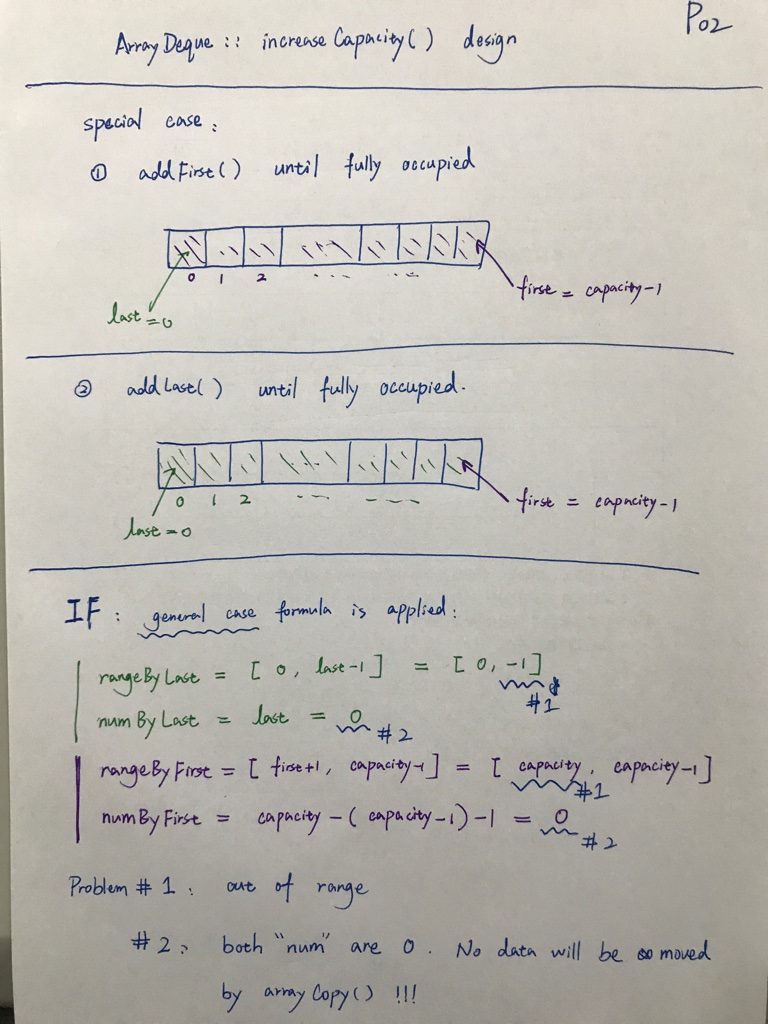 P02
ArrayDeque :: increaseCapacity() design
special case:
① addFirst() until fully occupied
0 1 2 ... ...
last=0
first = capacity-1
② addLast() until fully occupied.
0 1 2 --- ----
last=0
first = capacity-1
IF: general case formula is applied:
rangeByLast = [0, last-1] = [0, -1]
#1
numByLast = last = 0
#2
rangeByFirst = [first+1, capacity-1] = [capacity, capacity-1]
#1
numByFirst = capacity-(capacity-1)-1 = 0
#2
Problem #1: out of range
#2: both "num" are 0. No data will be moved
by arrayCopy() !!!